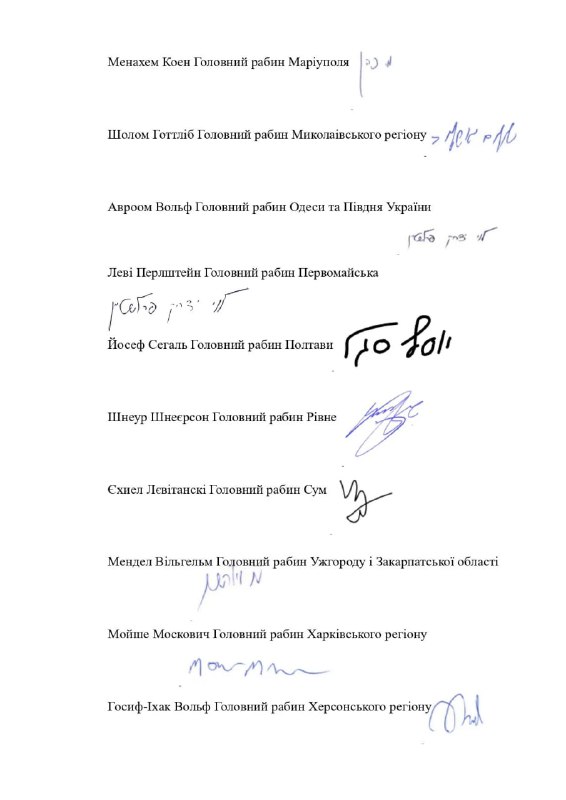 Менахем Коен Головний рабин Маріуполя
Шолом Готтліб Головний рабин Миколаівського регіону
Авроом Вольф Головний рабин Одеси та Півдня України
לוי יצחק פרלשטיין
Леві Перлштейн Головний рабин Первомайська
לוי יצחק פרלשטיין
Йосеф Сегаль Головний рабин Полтави יוסף סגל
Шнеур Шнеєрсон Головний рабин Рівне
Єхиел Лєвітанскі Головний рабин Сум
Мендел Вільгельм Головний рабин Ужгороду і Закарпатської області
Мойше Москович Головний рабин Харківського регіону
Госиф-Іхак Вольф Головний рабин Херсонського регіону